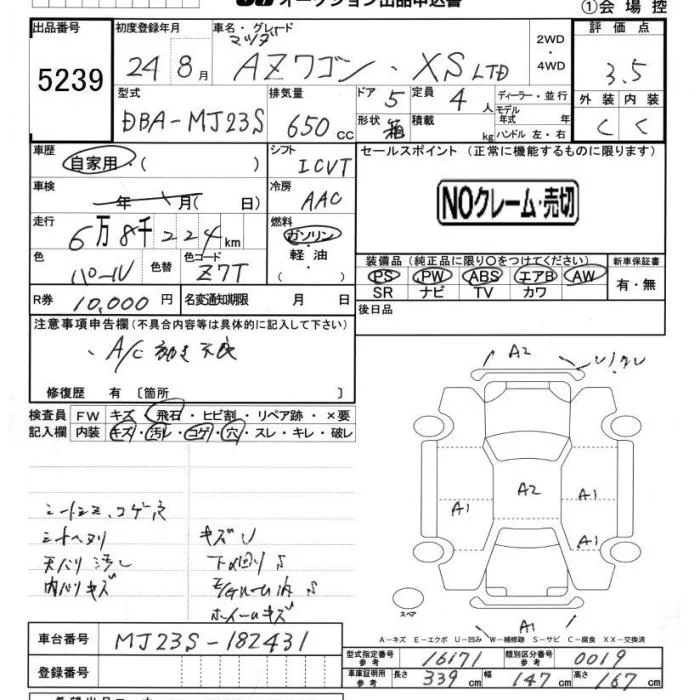 オークション出品申込書
①会場控
出品番号 初度登録年月 車名・グレード 2WD ・ 4WD 評価点
5239 24年8月 マツダ AZワゴン・XS LTD 3.5
型式 排気量 ドア 5 定員 4人 ディーラー・並行 外装 内装
DBA-MJ23S 650cc 形状 箱 積載 kg モデル年式 年 ハンドル 左・右 C C
車歴 シフト セールスポイント (正常に機能するものに限ります)
自家用・( ) ICVT
車検 冷房 NOクレーム・売切
年 月(日) AAC
走行 燃料
6万8千224km ガソリン・軽油・( )
色 色替 色コード 装備品(純正品に限り○をつけてください) 新車保証書
パール Z7T PS PW ABS エアB AW 有・無
SR ナビ TV カワ
R券 10,000円 名変通知期限 月 日 後日品
注意事項申告欄(不具合内容等は具体的に記入して下さい)
・A/C 効き不良
修復歴 有〔箇所 〕
検査員 FW キズ・飛石・ヒビ割・リペア跡・×要
記入欄 内装 キズ・汚レ・コゲ・穴・スレ・キレ・破レ
A2
A2
A1
A1
A1
A1
シートシミ、コゲ穴
シートヘタリ キズU
天バリ汚レ 下回りS
内バリキズ E/ルーム内S
ホイールキズ
スペア
A-キズ E-エクボ U-凹み W-補修跡 S-サビ C-腐食 XX-交換済
車台番号 MJ23S-182431
型式指定番号 参考 16171 類別区分番号 参考 0019
登録番号
車庫証明用 参考 長さ 339cm 幅 147cm 高さ 167cm